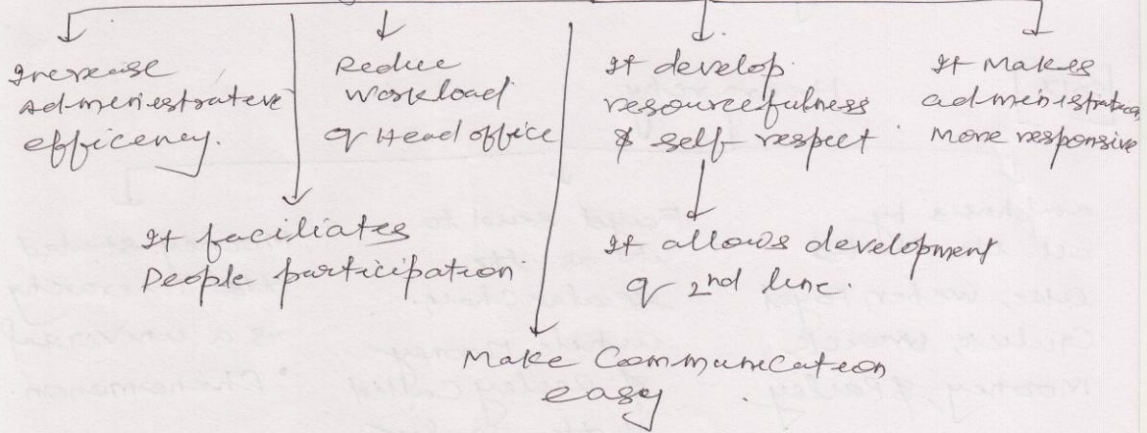 Increase
administrative
efficency.
Reduce
workload
of Head office
It develop
resourcefulness
& self respect
It makes
administration
more responsive
It faciliates
People participation
It allows development
of 2nd line.
Make Communication
easy